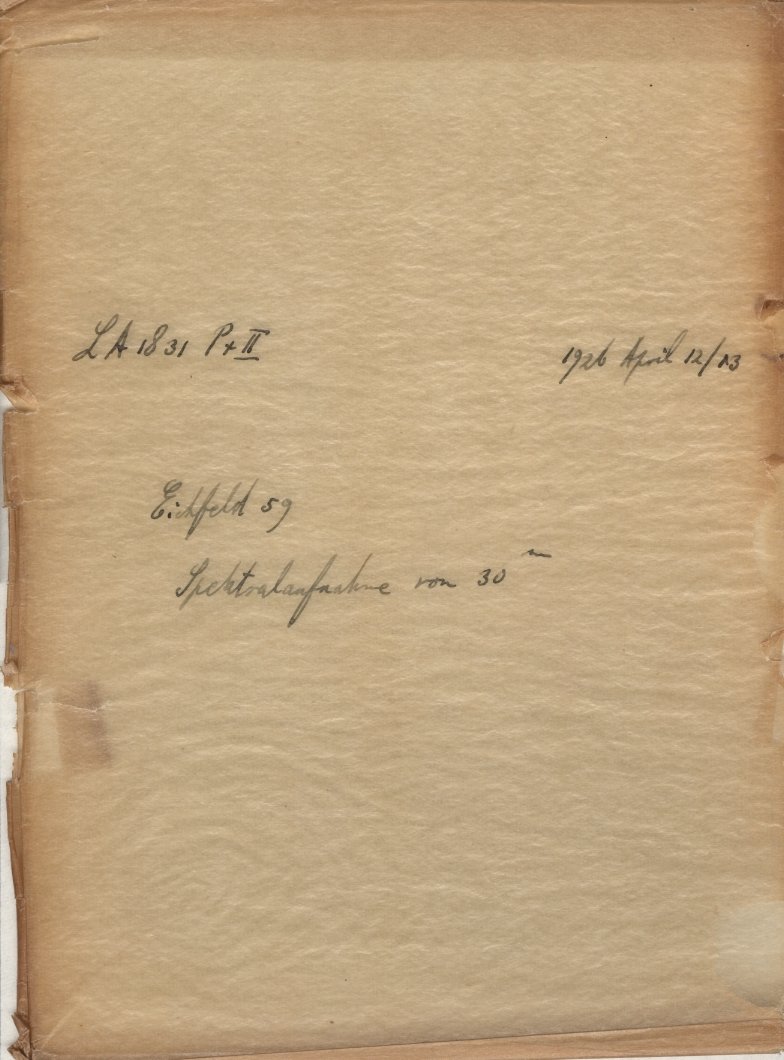 LA 1831 P+II
1926 April 12/13
Eichfeld 59
Spektralaufnahme von 30 m